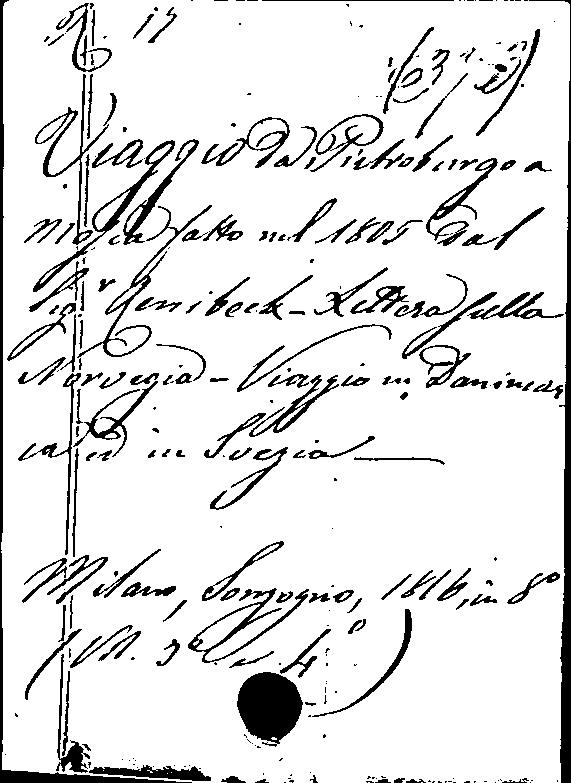 N. 17
Viaggio da Pietroburgo a
Moscia fatto nel 1805 dal
Sig.r Reinbeck - Lettera sulla
Norvegia - Viaggio in Danimar-
ca ed in Svezia —
Milano, Sonzogno, 1816, in 8°
(Vol. 3° e 4°)